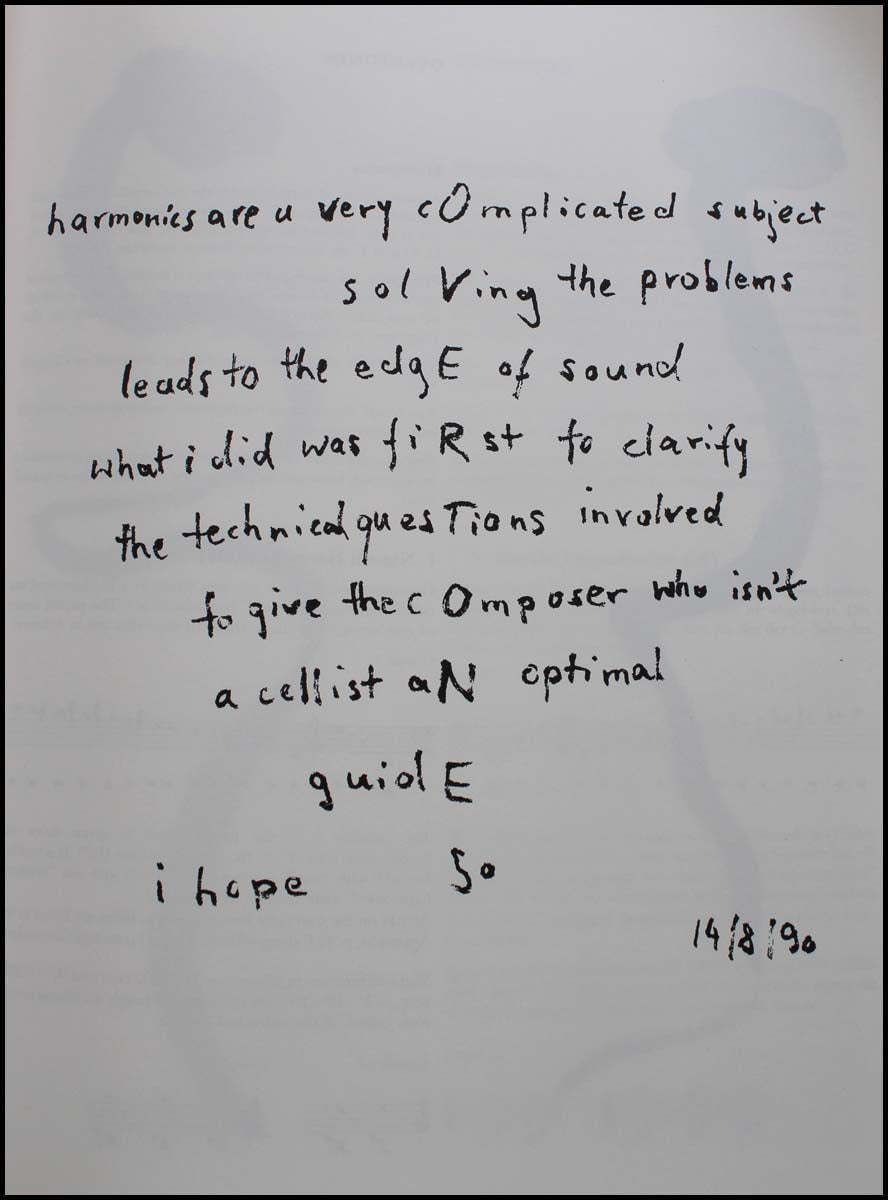 harmonics are a very cOmplicated subject
solVing the problems
leads to the edgE of sound
what i did was fiRst to clarify
the technical quesTions involved
to give the cOmposer who isn't
a cellist aN optimal
guidE
i hope So
14/8/90